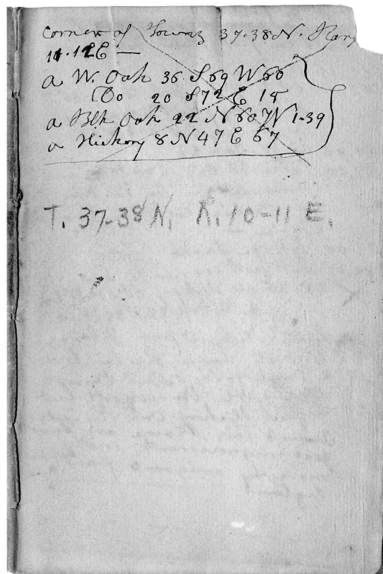 Corner of Towns 37-38 N. Rang
11-12 E —
a W. Oak 36 S 69 W 60
Do 20 S 72 E 15
a Blk Oak 22 N 60 W 1.39
a Hickory 8 N 47 E 67
T. 37-38 N, R. 10-11 E.